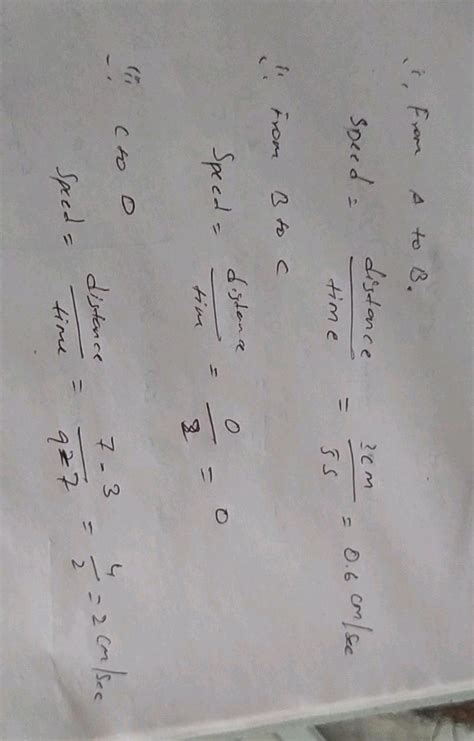 i. From A to B.
Speed = distance / time = 3cm / 5s = 0.6 cm/sec
ii. From B to C
Speed = distance / time = 0 / 2 = 0
iii. C to D
Speed = distance / time = 7-3 / 9-7 = 4 / 2 = 2 cm/sec